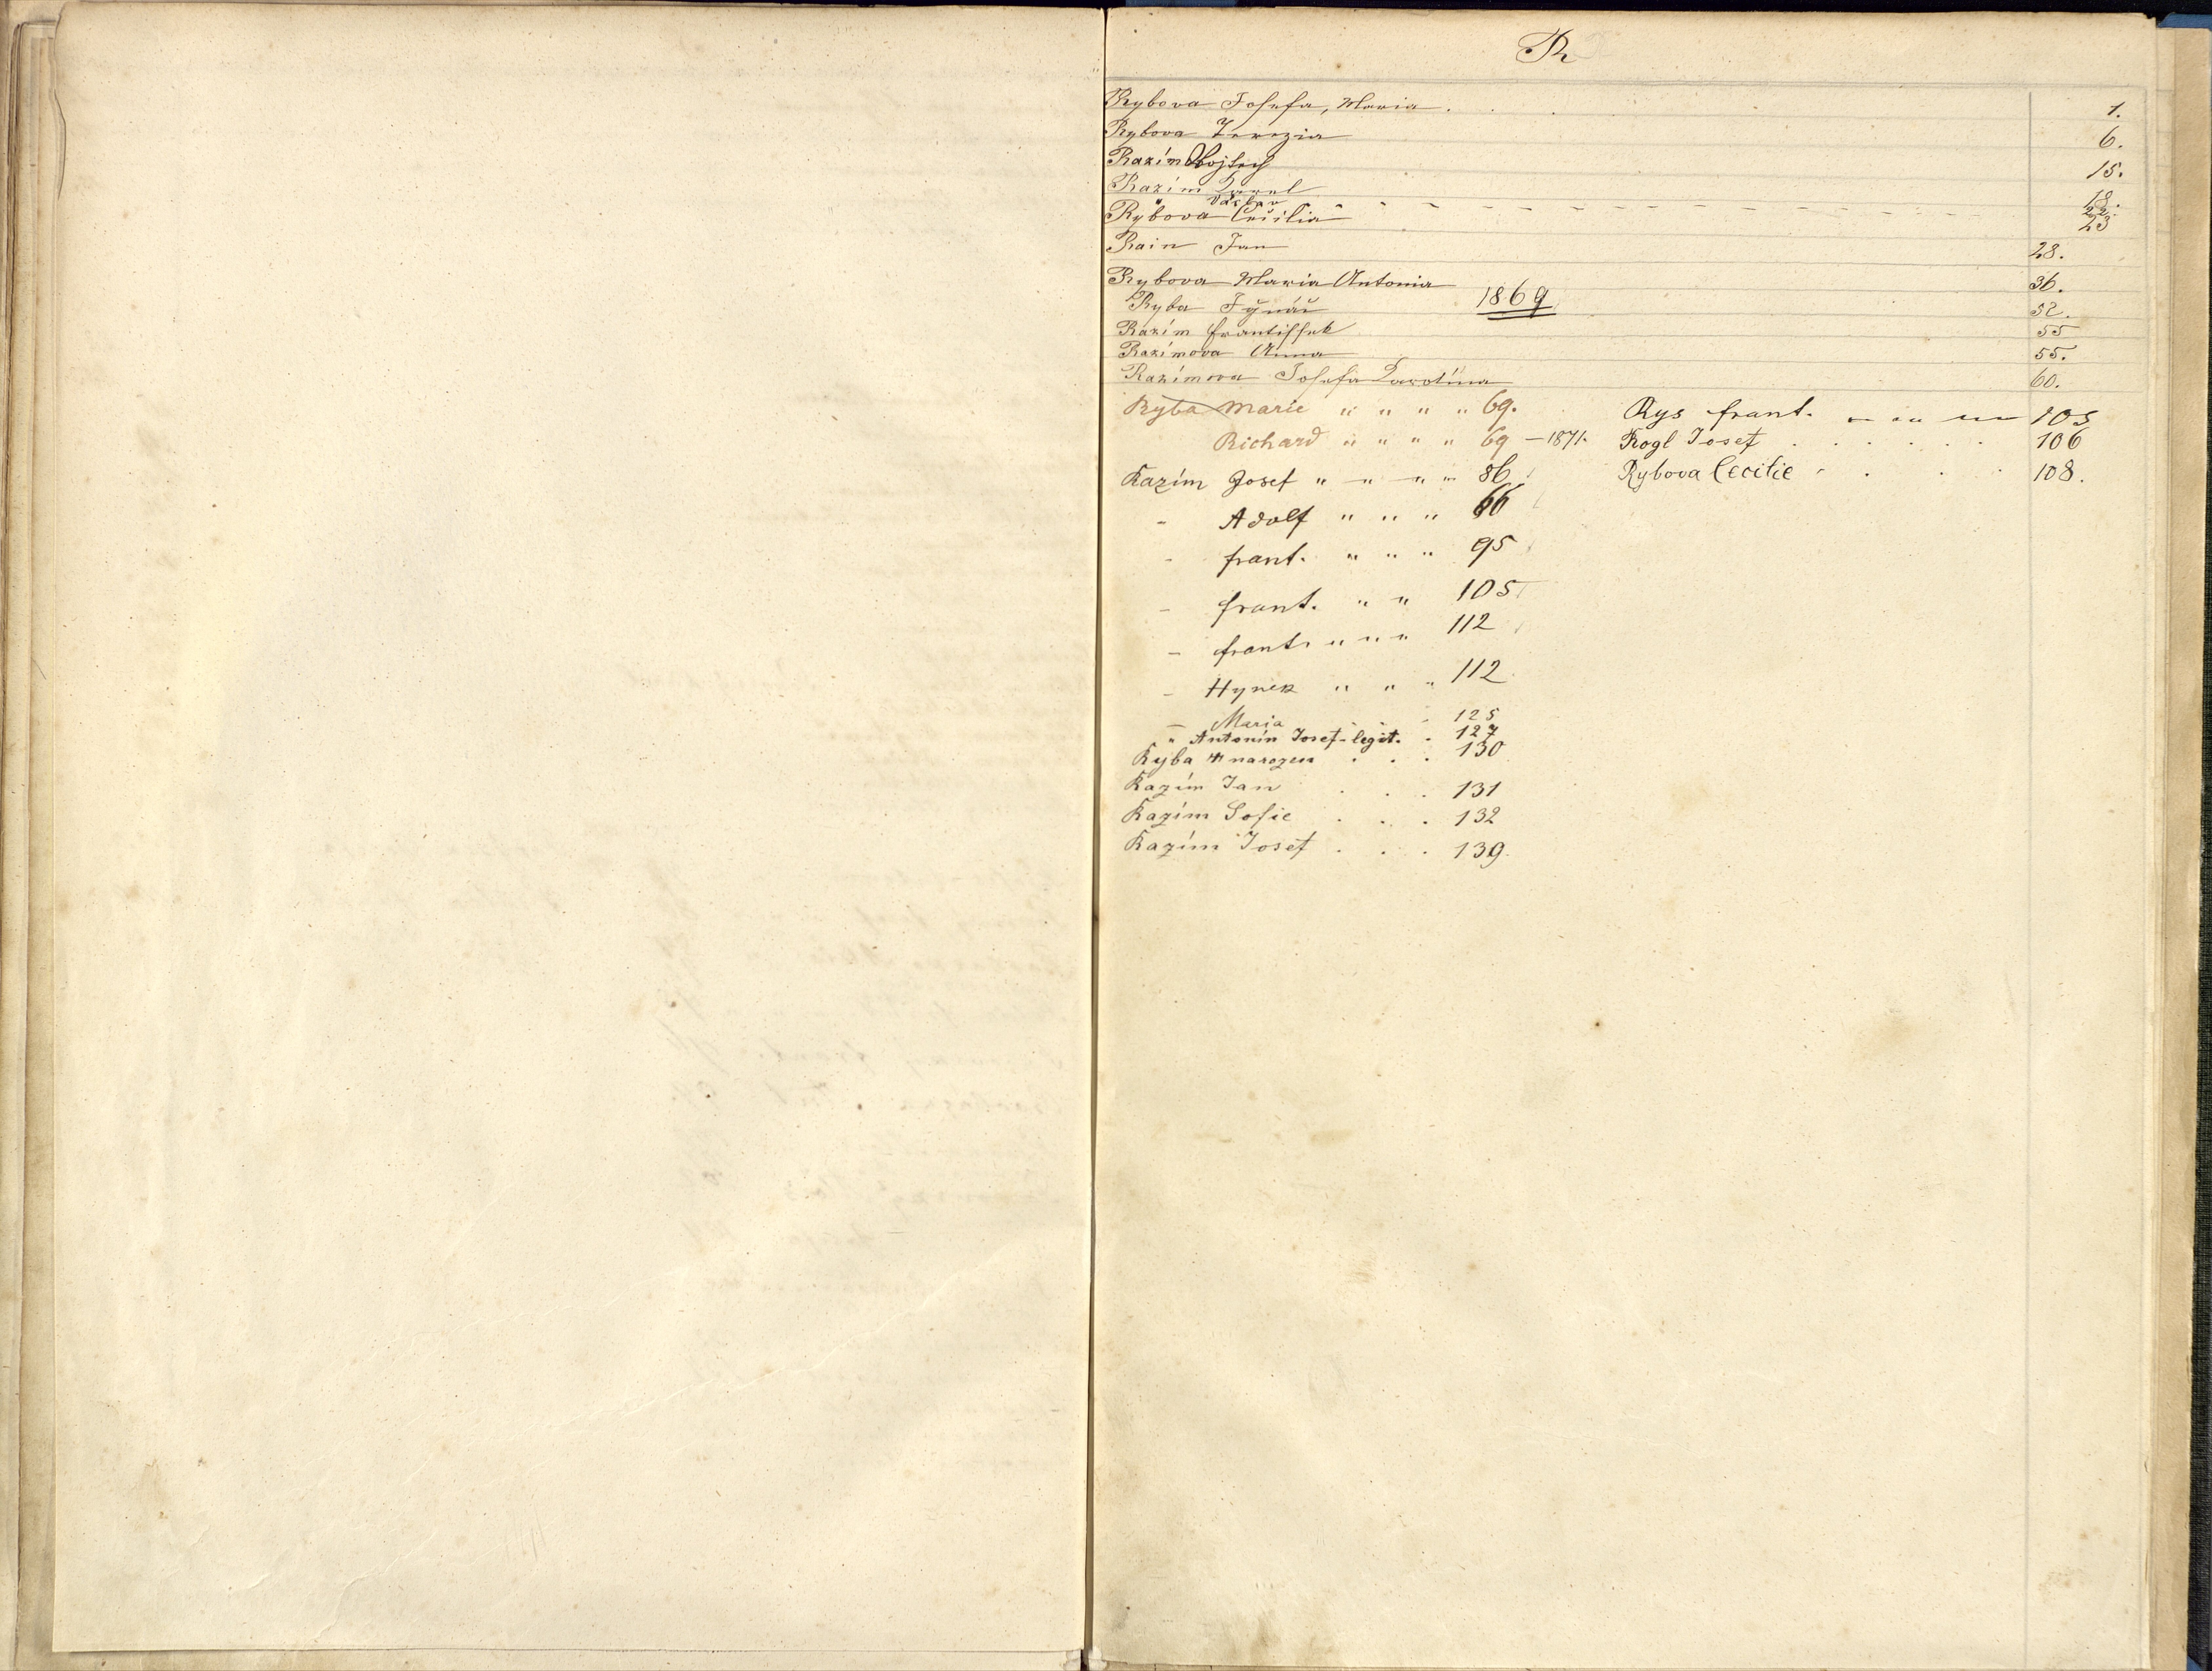 R
Rybova Josefa, Maria . 1.
Rybova Terezia 6.
Razím Vojtech 15.
Razím Karel 18.
" Václav 22.
Rybova Cecilia 23
Rain Jan 28.
Rybova Maria Antonia 36.
Ryba Ignác 1869 52.
Razím Frantissek 55
Razímova Anna 55.
Razímova Josefa Karolina 60.
Ryba Marie " " " " 69.
Richard " " " " 69 – 1871.
Razím Josef " " " " 86
- Adolf " " " 66
- Frant. " " " 95
- Frant. " " 105
- Frant. " " " 112
- Hynek " " " 112
- Maria - 125
" Antonín Josef - legit. . 127
Ryba narozen . . . 130
Razím Jan . . . 131
Razím Sofie . . . 132
Razím Josef . . . 139.
Rys Frant. 103
Rogl Josef . . . . . . 106
Rybova Cecilie . . . . 108.